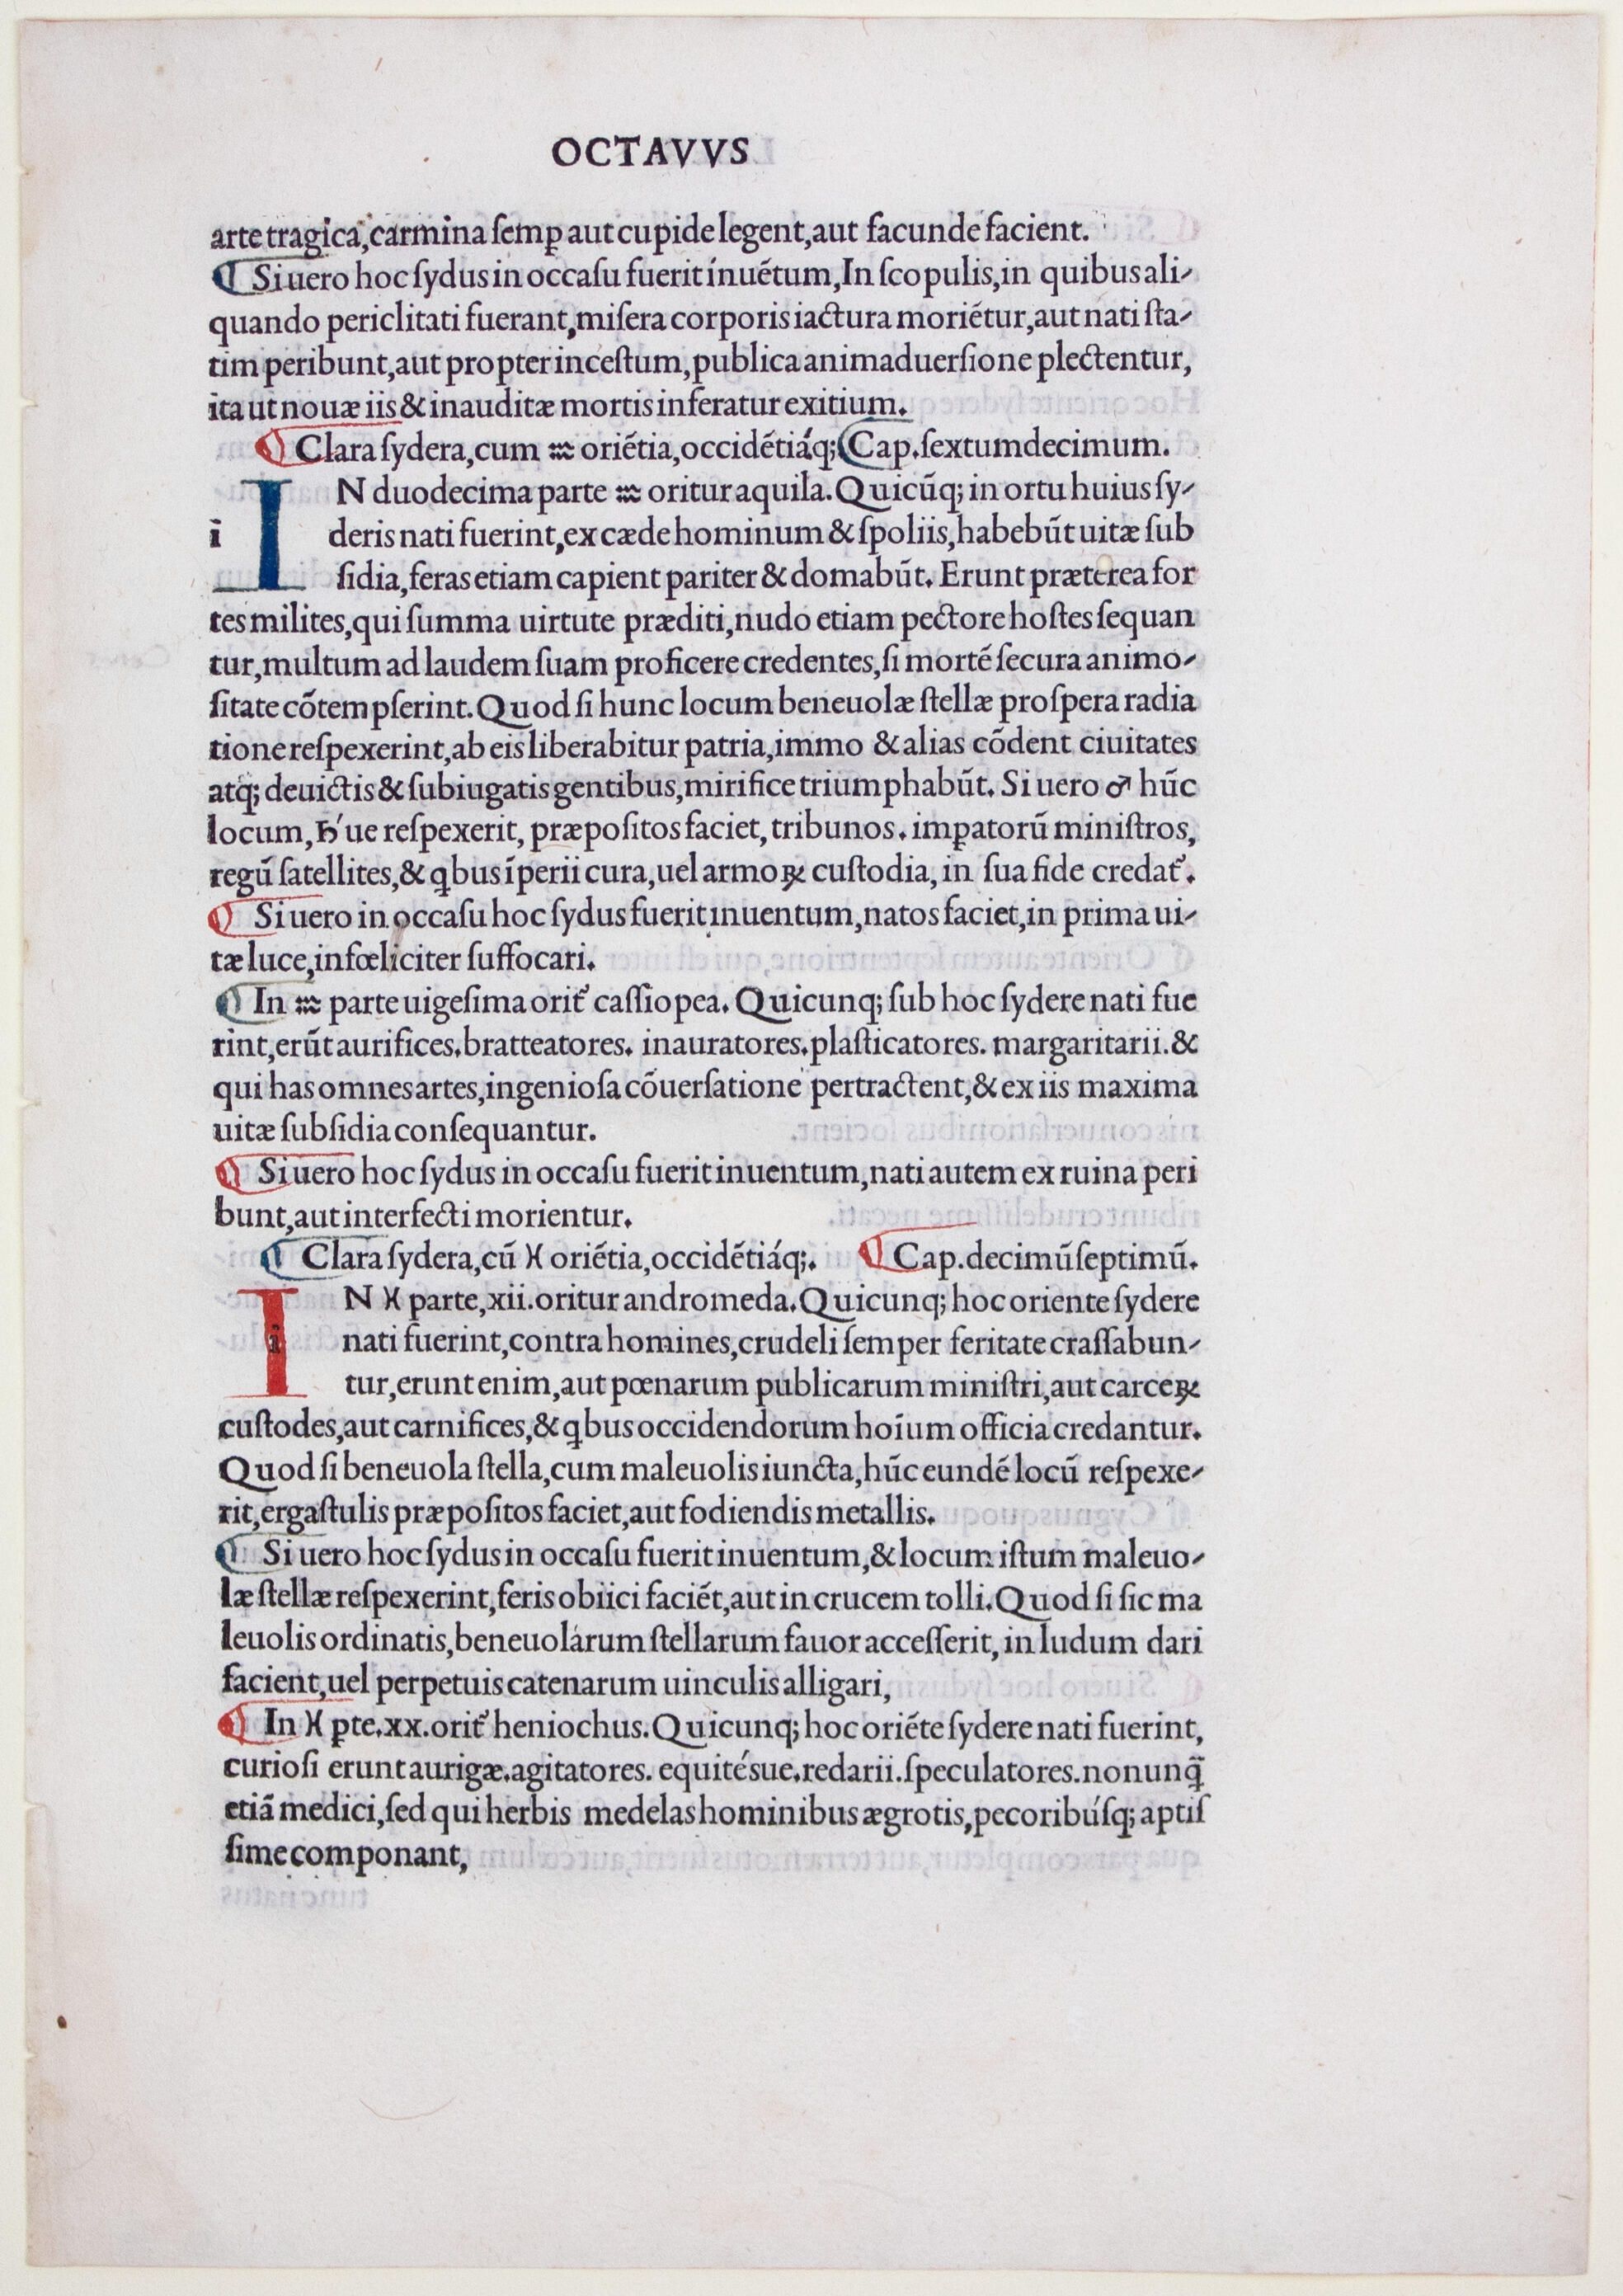 OCTAVVS
arte tragica, carmina semꝑ aut cupide legent, aut facunde facient.
¶ Si uero hoc ſydus in occaſu fuerit inuẽtum, In ſcopulis, in quibus ali-
quando periclitati fuerant, miſera corporis iactura moriẽtur, aut nati ſta-
tim peribunt, aut propter inceſtum, publica animaduerſione plectentur,
ita ut nouæ iis & inauditæ mortis inferatur exitium.
¶ Clara ſydera, cum ♒ oriẽtia, occidẽtiáq; Cap. ſextumdecimum.
IN duodecima parte ♒ oritur aquila. Quicũq; in ortu huius ſy-
i deris nati fuerint, ex cæde hominum & ſpoliis, habebũt uitæ ſub
ſidia, feras etiam capient pariter & domabũt. Erunt præterea for
tes milites, qui ſumma uirtute præditi, nudo etiam pectore hoſtes ſequan
tur, multum ad laudem ſuam proficere credentes, ſi mortẽ ſecura animo-
ſitate cõtempſerint. Quod ſi hunc locum beneuolæ ſtellæ proſpera radia
tione reſpexerint, ab eis liberabitur patria, immo & alias cõdent ciuitates
atq; deuictis & ſubiugatis gentibus, mirifice triumphabũt. Si uero ♂ hũc
locum, ♄'ue reſpexerit, præpoſitos faciet, tribunos. imꝑatorũ miniſtros,
regũ ſatellites, & qbus ĩperii cura, uel armoꝝ cuſtodia, in ſua fide credat᷑.
¶ Si uero in occaſu hoc ſydus fuerit inuentum, natos faciet, in prima ui-
tæ luce, infœliciter ſuffocari.
¶ In ♒ parte uigeſima orit᷑ caſſiopea. Quicunq; ſub hoc ſydere nati fue
rint, erũt aurifices. bratteatores. inauratores. plaſticatores. margaritarii. &
qui has omnes artes, ingenioſa cõuerſatione pertractent, & ex iis maxima
uitæ ſubſidia conſequantur.
¶ Si uero hoc ſydus in occaſu fuerit inuentum, nati autem ex ruina peri
bunt, aut interfecti morientur.
¶ Clara ſydera, cũ ♓ oriẽtia, occidẽtiáq;. ¶ Cap. decimũſeptimũ.
IN ♓ parte, xii. oritur andromeda. Quicunq; hoc oriente ſydere
i nati fuerint, contra homines, crudeli ſemper feritate craſſabun-
tur, erunt enim, aut pœnarum publicarum miniſtri, aut carceꝝ
cuſtodes, aut carnifices, & qbus occidendorum hoĩum officia credantur.
Quod ſi beneuola ſtella, cum maleuolis iuncta, hũc eundẽ locũ reſpexe-
rit, ergaſtulis præpoſitos faciet, aut fodiendis metallis.
¶ Si uero hoc ſydus in occaſu fuerit inuentum, & locum iſtum maleuo-
læ ſtellæ reſpexerint, feris obiici faciẽt, aut in crucem tolli. Quod ſi ſic ma
leuolis ordinatis, beneuolarum ſtellarum fauor acceſſerit, in ludum dari
facient, uel perpetuis catenarum uinculis alligari,
¶ In ♓ ꝑte. xx. orit᷑ heniochus. Quicunq; hoc oriẽte ſydere nati fuerint,
curioſi erunt aurigæ. agitatores. equitéſue. redarii. ſpeculatores. nonunq̃
etiã medici, ſed qui herbis medelas hominibus ægrotis, pecoribúſq; aptiſ
ſime componant,